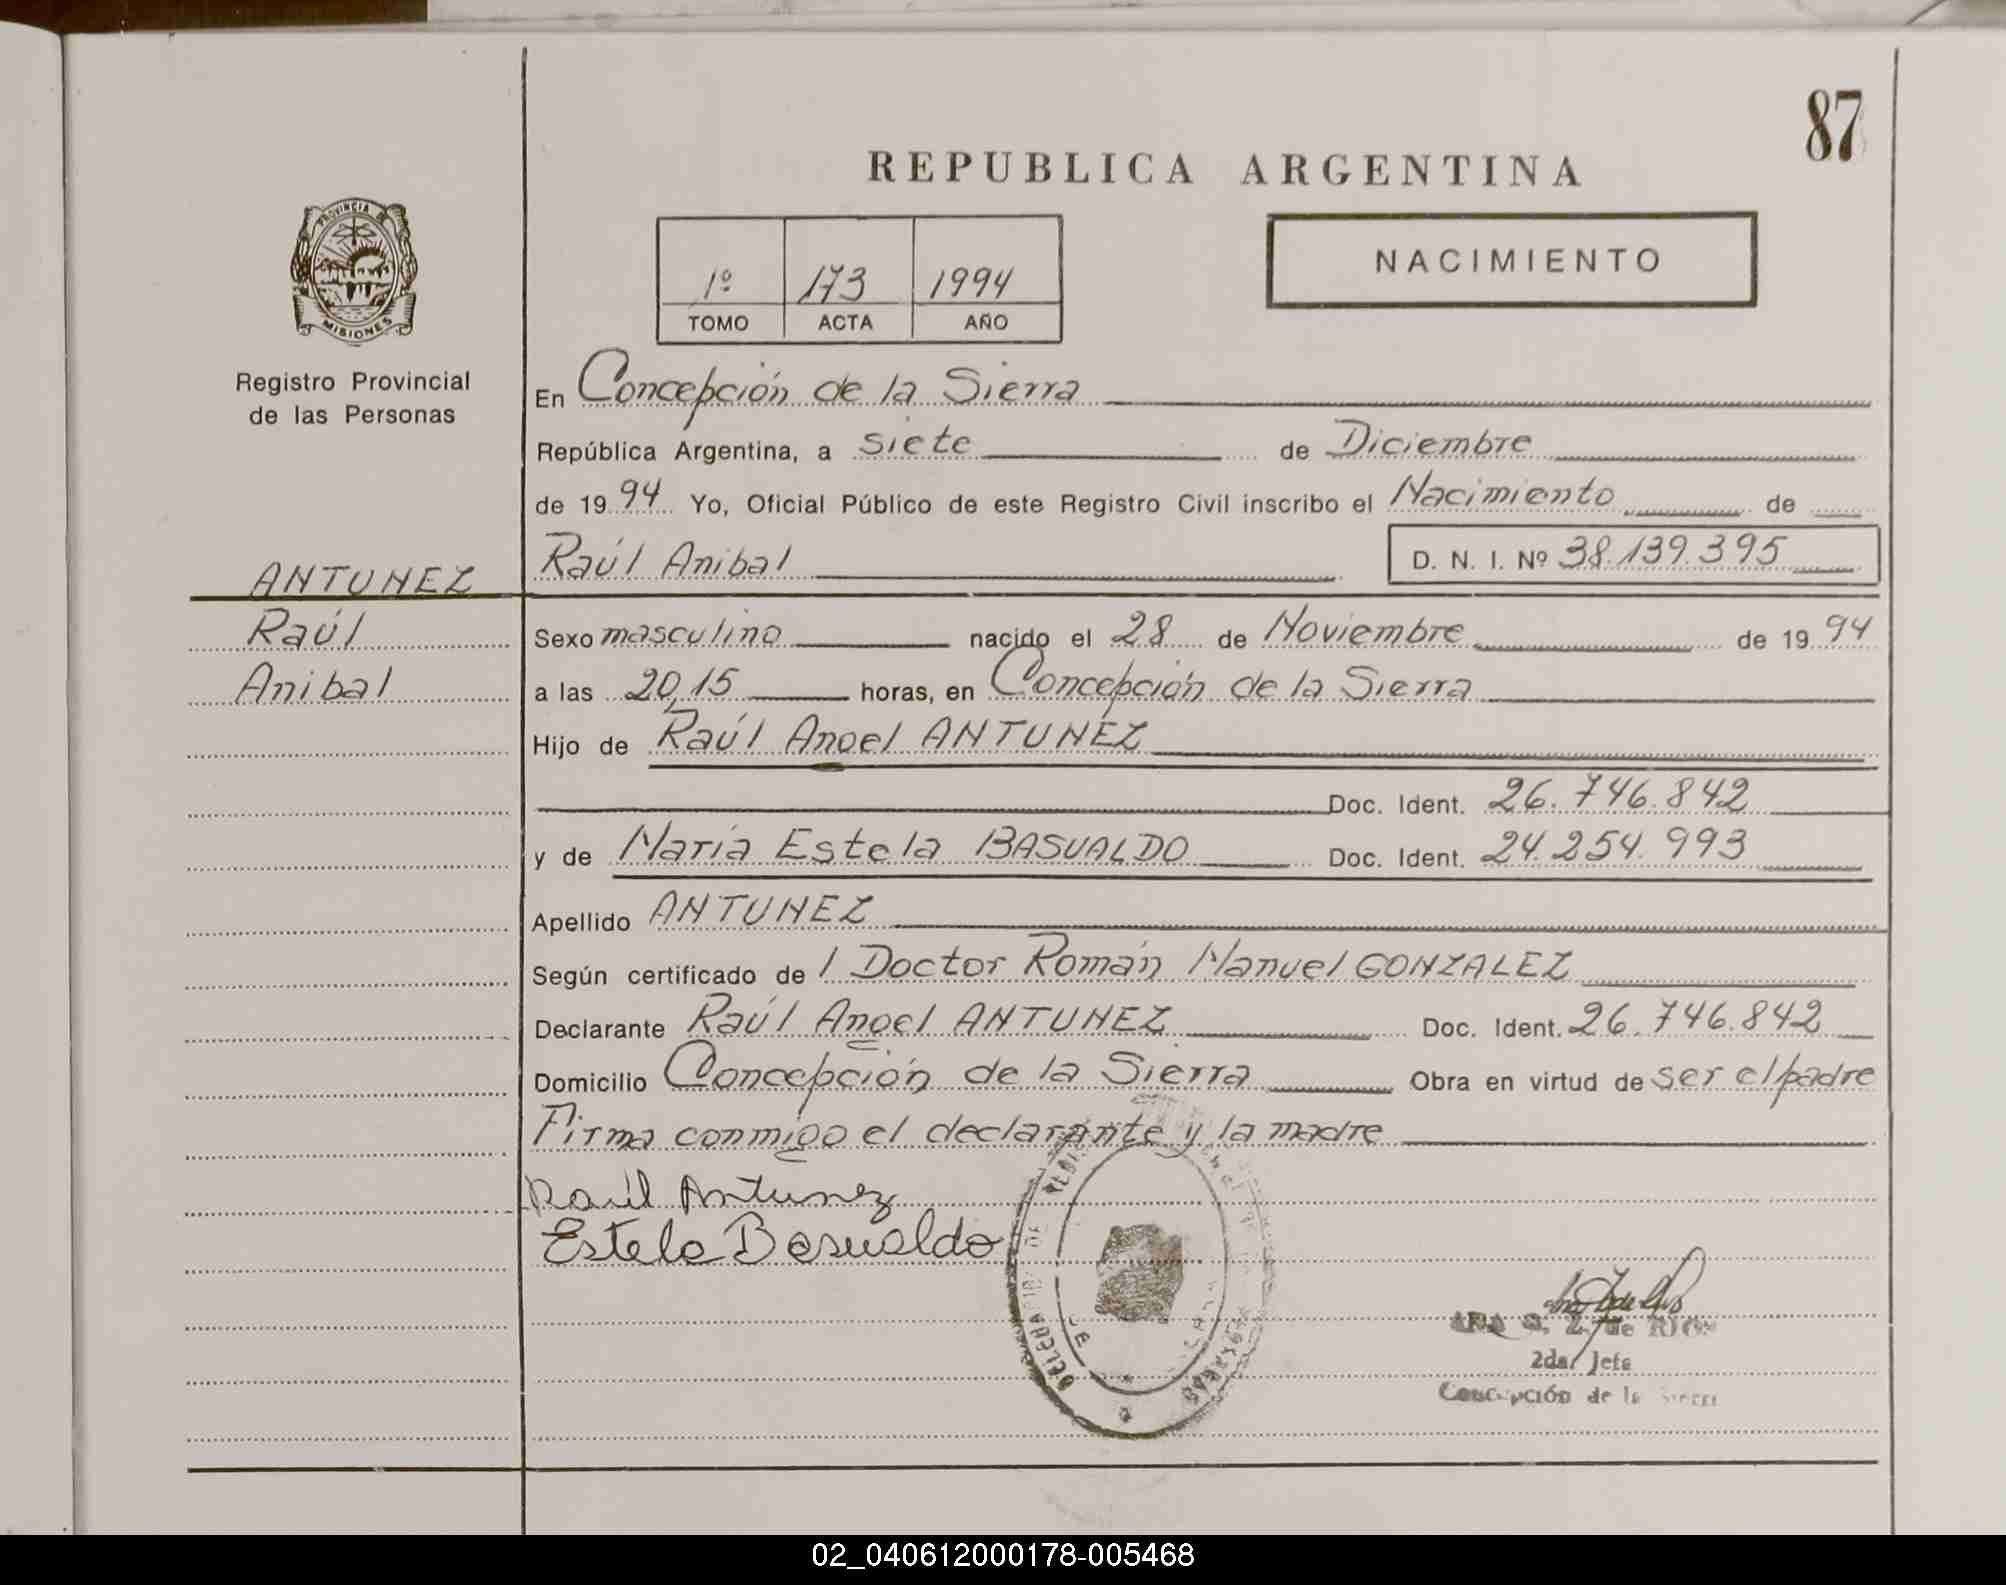 87
REPUBLICA ARGENTINA
PROVINCIA DE
MISIONES
Registro Provincial
de las Personas
1º 173 1994
TOMO ACTA AÑO
NACIMIENTO
En Concepción de la Sierra
República Argentina, a siete de Diciembre
de 1994 Yo, Oficial Público de este Registro Civil inscribo el Nacimiento de
ANTUNEZ
Raúl
Anibal
Raúl Anibal D. N. I. Nº 38.139.395
Sexo masculino nacido el 28 de Noviembre de 1994
a las 20,15 horas, en Concepción de la Sierra
Hijo de Raúl Angel ANTUNEZ
Doc. Ident. 26.746.842
y de María Estela BASUALDO Doc. Ident. 24.254.993
Apellido ANTUNEZ
Según certificado de l Doctor Román Manuel GONZALEZ
Declarante Raúl Angel ANTUNEZ Doc. Ident. 26.746.842
Domicilio Concepción de la Sierra Obra en virtud de ser el padre
Firma conmigo el declarante y la madre
Raúl Antunez
Estela Basualdo
de RIOS
2da. Jefa
Concepción de la Sierra
02_040612000178-005468